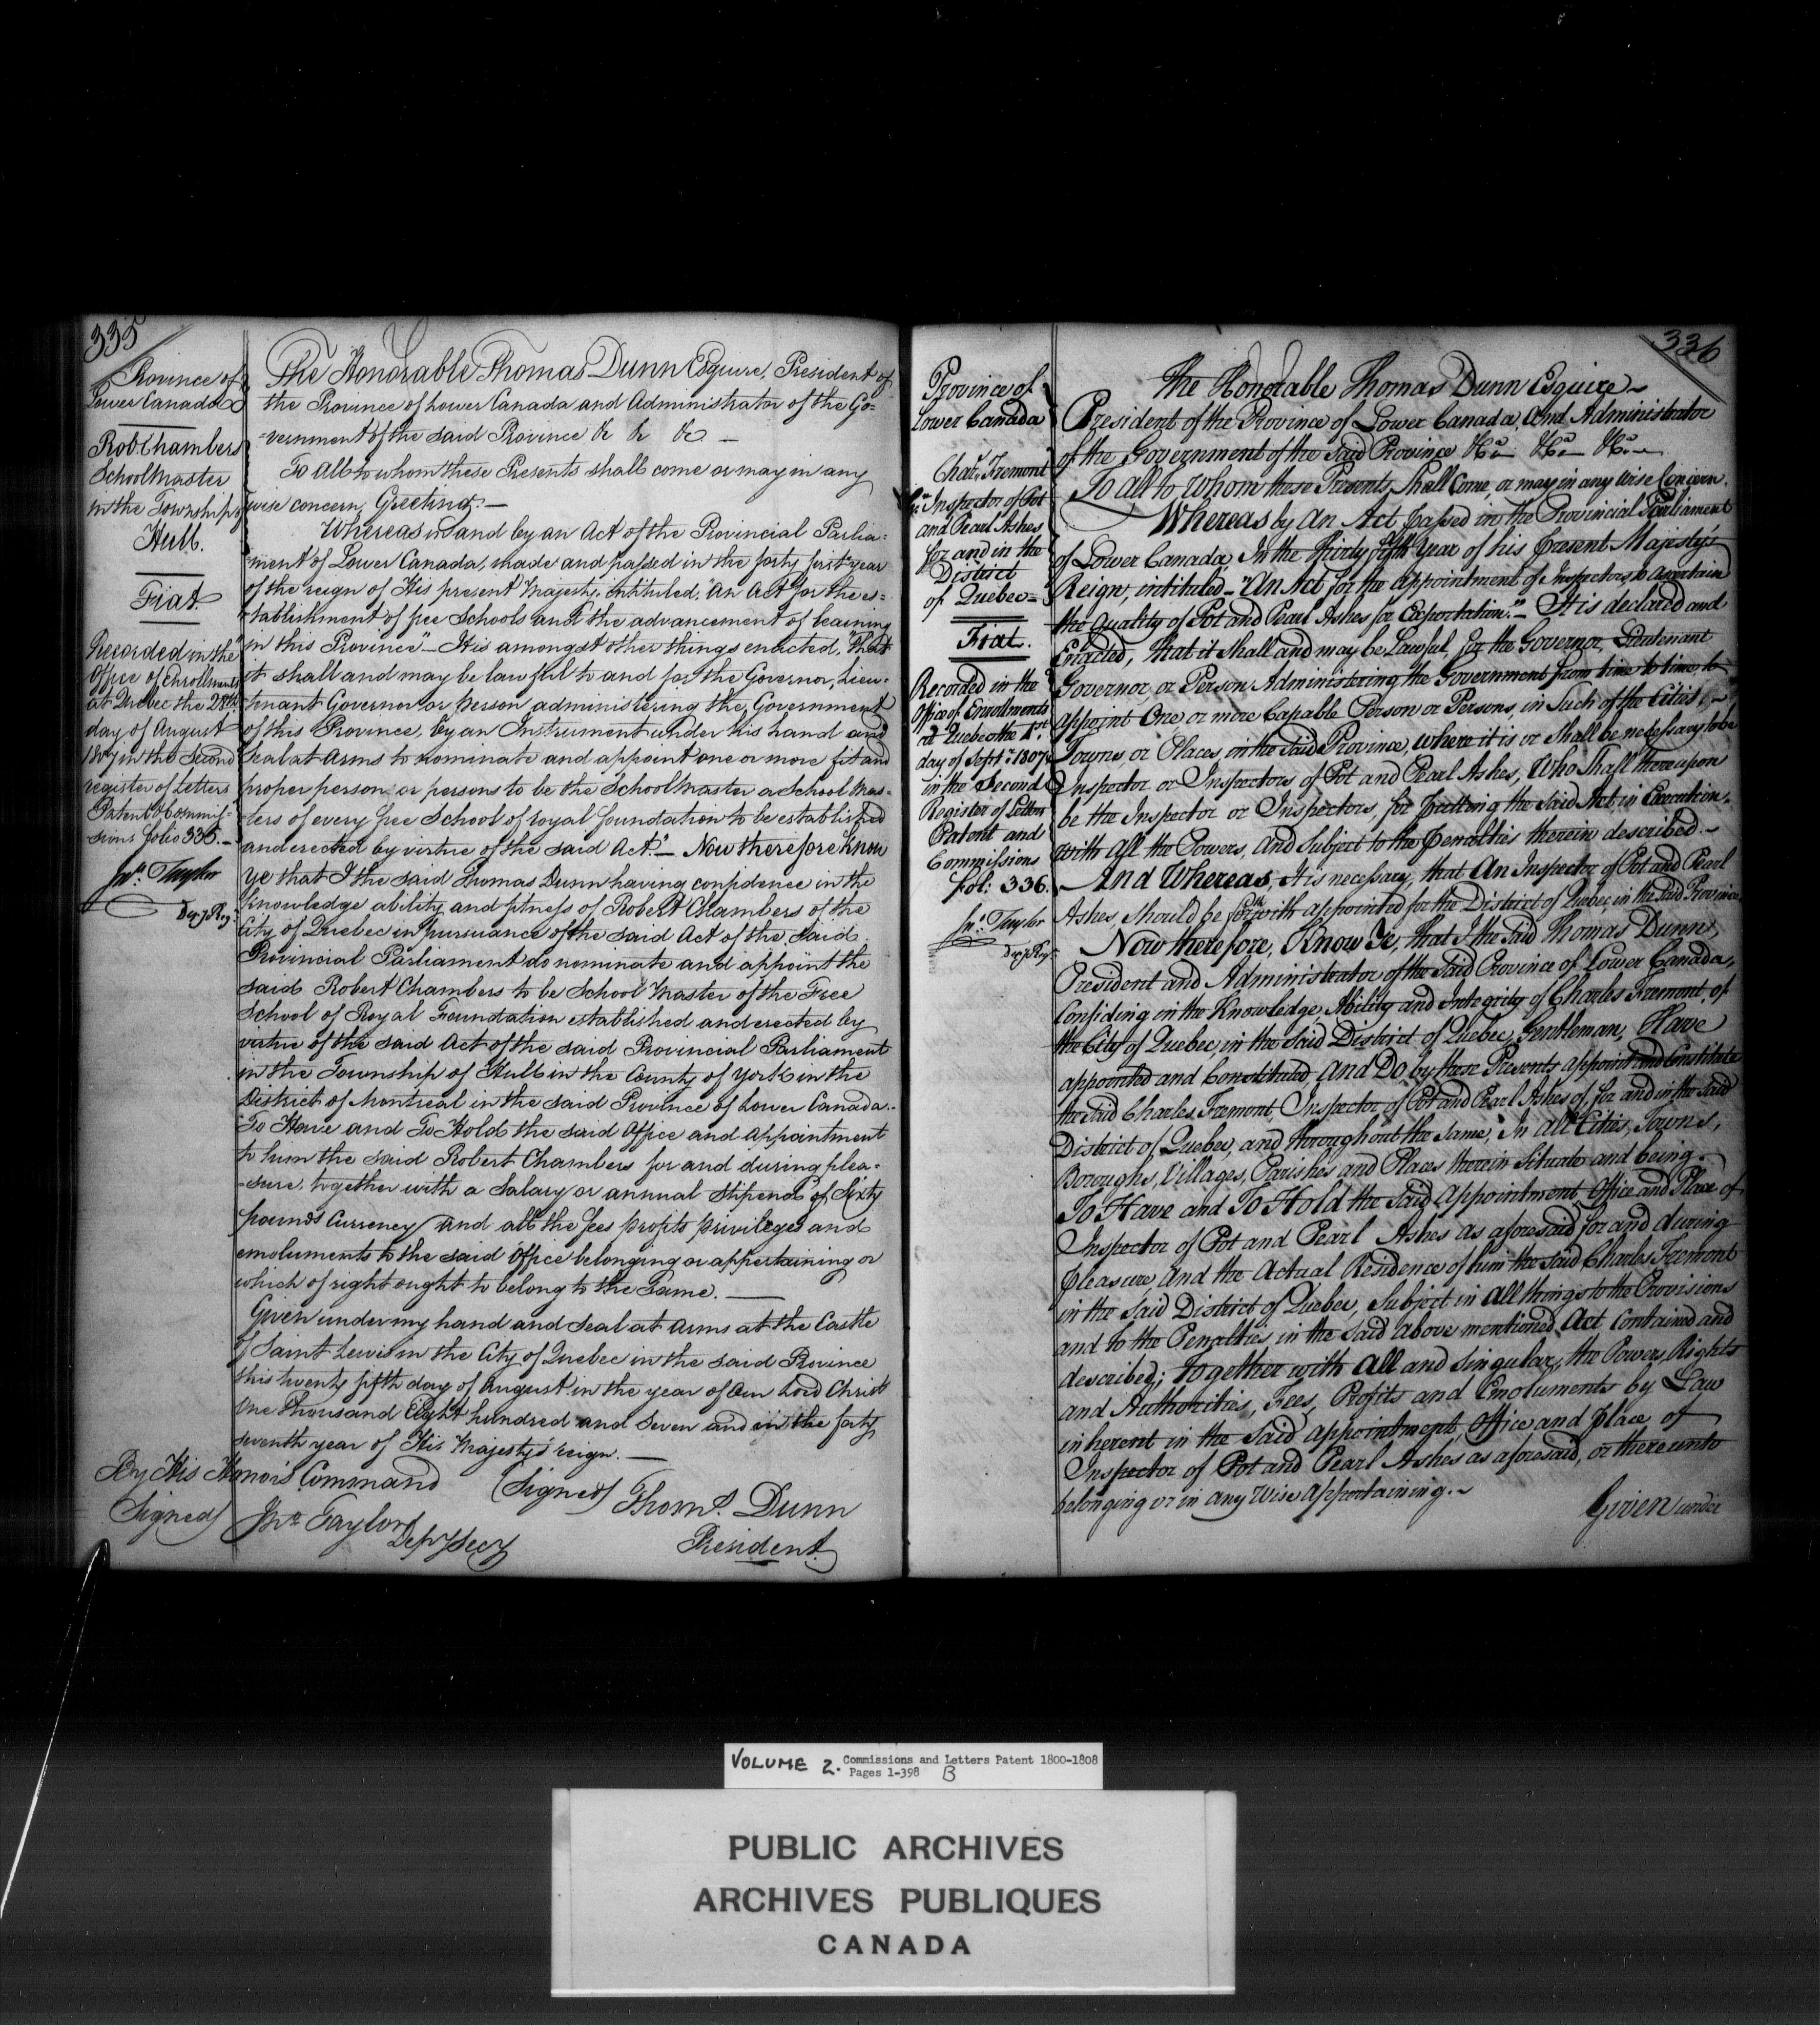 335
Province of
Lower Canada
Rob. Chambers
School Master
in the Township of
Hull.
Fiat.
Recorded in the
Office of Enrollments
at Quebec the 28th
day of August
1807 in the Second
register of Letters
Patent & Commis-
sions folio 335.
Jno. Taylor
Depy Regr
The Honorable Thomas Dunn Esquire, President of
the Province of Lower Canada and Administrator of the Go-
-vernment of the said Province &c &c &c
To all to whom these Presents shall come or may in any
wise concern, Greeting.
Whereas in and by an Act of the Provincial Parlia-
ment of Lower Canada, made and passed in the forty first year
of the reign of His present Majesty, intituled, "An Act for the es-
tablishment of free Schools and the advancement of learning
in this Province" It is amongst other things enacted, "That
it shall and may be lawful to and for the Governor, Lieu-
tenant Governor or person administering the Government
of this Province, by an Instrument under his hand and
seal at Arms to nominate and appoint one or more fit and
proper person or persons to be the School Master or School Mas-
ters of every free School of royal foundation to be established
and erected by virtue of the said Act." Now therefore Know
Ye that I the said Thomas Dunn having confidence in the
knowledge ability and fitness of Robert Chambers of the
City of Quebec in pursuance of the said Act of the said
Provincial Parliament do nominate and appoint the
said Robert Chambers to be School Master of the Free
School of Royal Foundation established and erected by
virtue of the said Act of the said Provincial Parliament
in the Township of Hull in the County of York in the
District of Montreal in the said Province of Lower Canada.
To Have and To Hold the said Office and Appointment
to him the said Robert Chambers for and during plea-
-sure, together with a Salary or annual stipend of Sixty
pounds Currency and all the fees profits privileges and
emoluments to the said Office belonging or appertaining or
which of right ought to belong to the Same.
Given under my hand and Seal at Arms at the Castle
of Saint Lewis in the City of Quebec in the said Province
this twenty fifth day of August in the year of Our Lord Christ
One Thousand Eight hundred and Seven and in the forty
seventh year of His Majesty's reign.
By His Honor's Command
(Signed) Thoms. Dunn
President.
(Signed) Jno. Taylor
Depy Secy
336
Province of
Lower Canada
Chas. Fremont
Inspector of Pot
and Pearl Ashes
for and in the
District
of Quebec
Fiat.
Recorded in the
Office of Enrollments
at Quebec the 1st
day of Septr. 1807
in the Second
Register of Letters
Patent and
Commissions
fol: 336.
Jno. Taylor
Depy Regr
The Honorable Thomas Dunn Esquire
President of the Province of Lower Canada And Administrator
of the Government of the Said Province &c. &c. &c.
To All to Whom these Presents Shall Come, or may in any wise Concern.
Whereas by An Act passed in the Provincial Parliament
of Lower Canada, In the thirty fifth Year of his Present Majesty's
Reign, intituled "An Act for the appointment of Inspectors to ascertain
the quality of Pot and Pearl Ashes for Exportation." It is declared and
Enacted, that it Shall and may be Lawful, for the Governor, Lieutenant
Governor, or Person Administering the Government from time to time to
appoint One or more Capable Person or Persons, in Such of the Cities,
Towns or Places, in the Said Province, where it is or shall be necessary to be
Inspector or Inspectors of Pot and Pearl Ashes, Who Shall thereupon
be the Inspector or Inspectors, for putting the Said Act in Execution,
with all the Powers, and Subject to the Penalties therein described.
And Whereas, It is necessary, that An Inspector of Pot and Pearl
Ashes should be forthwith appointed for the District of Quebec, in the Said Province
Now therefore, Know Ye, that I the Said Thomas Dunn,
President and Administrator of the Said Province of Lower Canada,
Confiding in the Knowledge, Ability and Integrity of Charles Fremont, of
the City of Quebec, in the Said District of Quebec, Gentleman, Have
appointed and Constituted, And Do by these Presents appoint and Constitute
the Said Charles Fremont, Inspector of Pot and Pearl Ashes of, for and in the Said
District of Quebec, and throughout the Same, In all Cities, Towns,
Boroughs, Villages, Parishes and Places therein Situate and being.
To Have and To Hold the Said appointment Office and Place of
Inspector of Pot and Pearl Ashes as aforesaid for and during
pleasure and the Actual Residence of him the Said Charles Fremont
in the Said District of Quebec, Subject in all things to the Provisions
and to the Penalties in the Said above mentioned Act Contained and
described; Together with all and Singular, the Powers, Rights
and Authorities, Fees, Profits and Emoluments by Law
inherent in the Said appointment, Office and place of
Inspector of Pot and Pearl Ashes as aforesaid, or thereunto
belonging or in any Wise appertaining.
Given under
VOLUME 2. Commissions and Letters Patent 1800-1808
Pages 1-398 B
PUBLIC ARCHIVES
ARCHIVES PUBLIQUES
CANADA